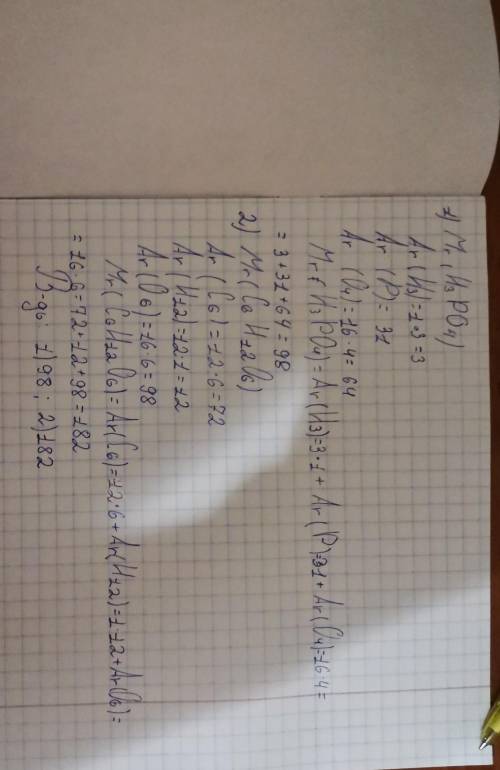 1) Mr(H₃PO₄)
Ar(H₃)=1·3=3
Ar(P)=31
Ar(O₄)=16·4=64
Mr(H₃PO₄)=Ar(H₃)=3·1+Ar(P)=31+Ar(O₄)=16·4=
=3+31+64=98
2) Mr(C₆H₁₂O₆)
Ar(C₆)=12·6=72
Ar(H₁₂)=12·1=12
Ar(O₆)=16·6=98
Mr(C₆H₁₂O₆)=Ar(C₆)=12·6+Ar(H₁₂)=1·12+Ar(O₆)=
=16·6=72+12+98=182
В-дь: 1)98; 2)182